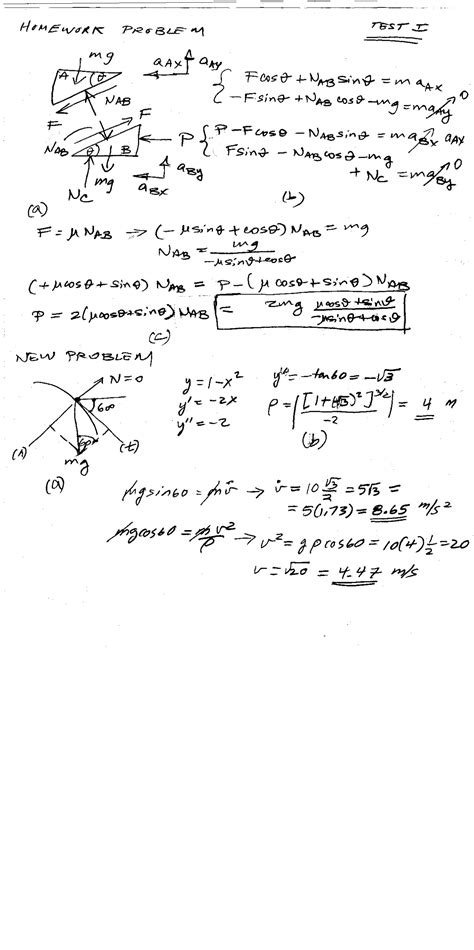 HOMEWORK PROBLEM
TEST I
mg
A θ
aAx aAy
Fcosθ + NAB sinθ = m aAx
-Fsinθ + NAB cosθ - mg = maAy 0
NAB
F
F
NAB
θ B
P
P - Fcosθ - NAB sinθ = maBx aAx
Fsinθ - NAB cosθ - mg
+ NC = maBy 0
NC
mg
aBx
aBy
(a)
(b)
F = μ NAB → (-μsinθ + cosθ) NAB = mg
NAB = mg / -μsinθ+cosθ
(+μcosθ + sinθ) NAB = P - (μcosθ + sinθ) NAB
P = 2(μcosθ+sinθ) NAB = 2mg μcosθ+sinθ / -μsinθ+cosθ
(c)
NEW PROBLEM
N=0
60°
60°
(n)
(t)
mg
(a)
y = 1-x²
y' = -2x
y'' = -2
y' = -tan60 = -√3
ρ = | [1+(√3)²]^3/2 / -2 | = 4 m
(b)
mg sin60 = m v̇ → v̇ = 10 √3/2 = 5√3 =
= 5(1,73) = 8.65 m/s²
mg cos60 = m v²/ρ → v² = g ρ cos60 = 10(4) 1/2 = 20
v = √20 = 4.47 m/s